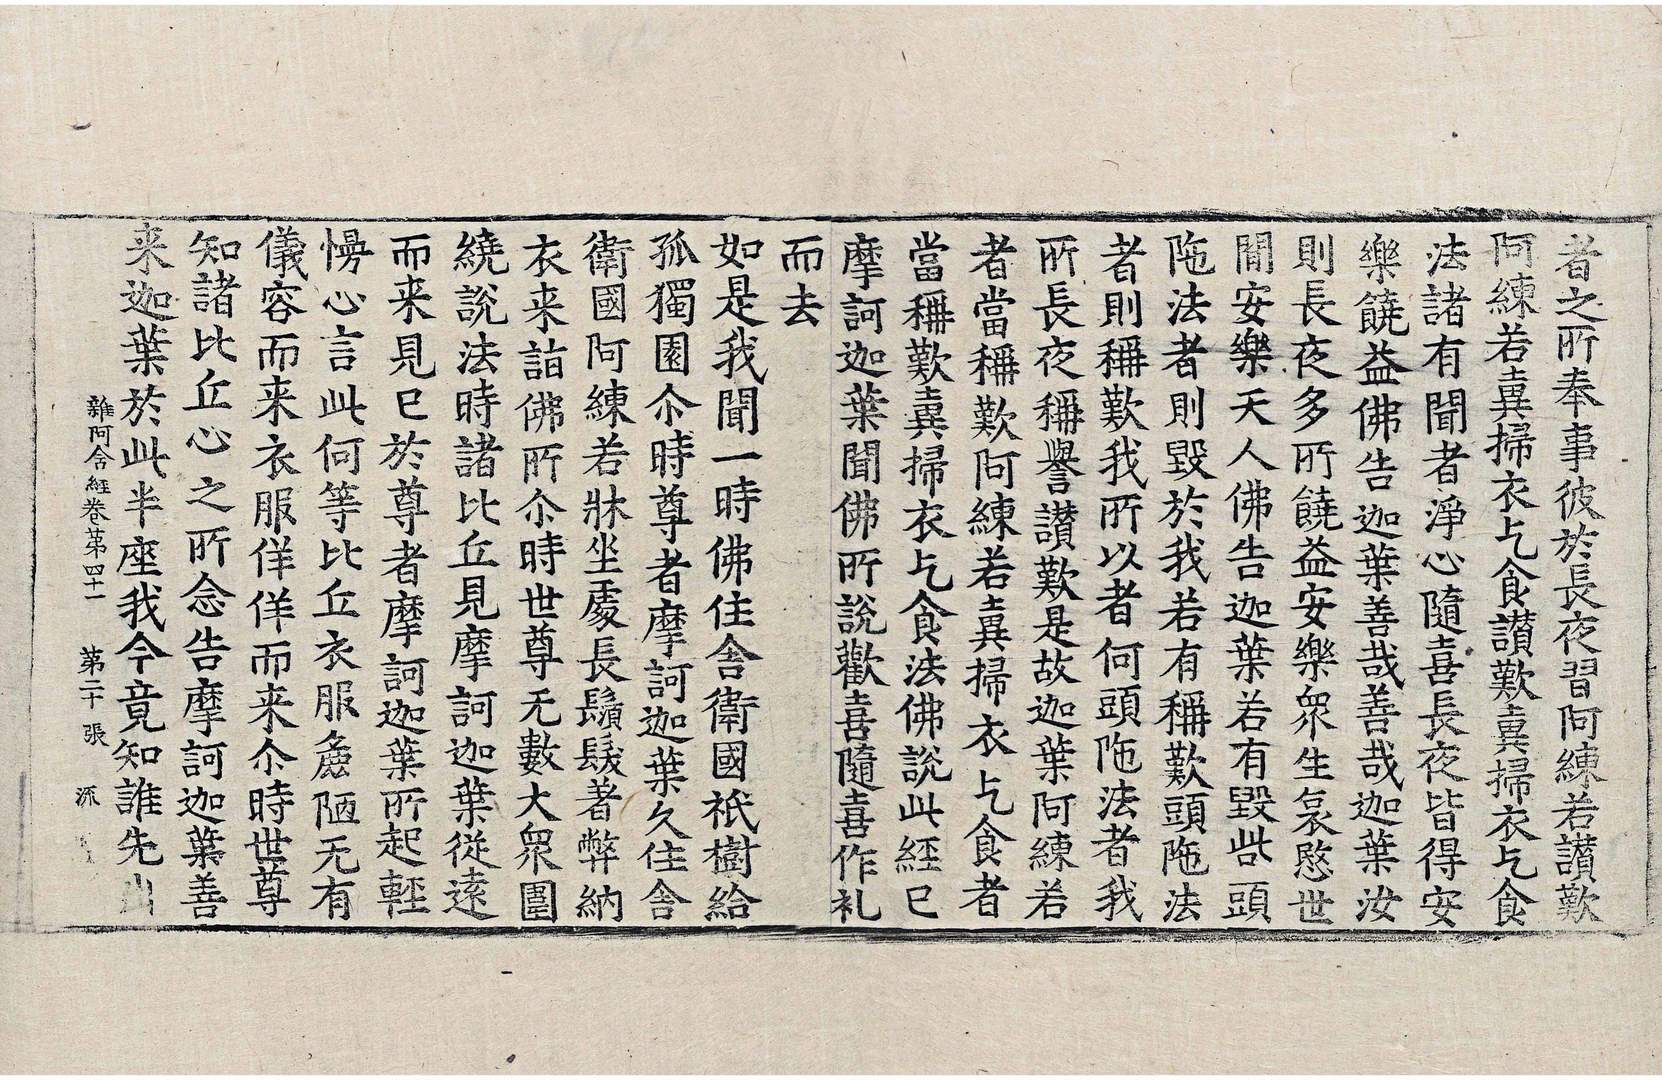 者之所奉事彼於長夜習阿練若讃歎
阿練若糞掃衣乞食讃歎糞掃衣乞食
法諸有聞者淨心隨喜長夜皆得安
樂饒益佛告迦葉善哉善哉迦葉汝
則長夜多所饒益安樂衆生哀愍世
閒安樂天人佛告迦葉若有毀呰頭
陁法者則毀於我若有稱歎頭陁法
者則稱歎我所以者何頭陁法者我
所長夜稱譽讃歎是故迦葉阿練若
者當稱歎阿練若糞掃衣乞食者
當稱歎糞掃衣乞食法佛說此經已
摩訶迦葉聞佛所說歡喜隨喜作礼
而去
如是我聞一時佛住舍衛國祇樹給
孤獨園尒時尊者摩訶迦葉久住舍
衛國阿練若牀坐處長鬚髮著弊納
衣来詣佛所尒時世尊无數大衆圍
繞說法時諸比丘見摩訶迦葉從遠
而来見已於尊者摩訶迦葉所起輕
慢心言此何等比丘衣服麁陋无有
儀容而来衣服佯佯而来尒時世尊
知諸比丘心之所念告摩訶迦葉善
来迦葉於此半座我今竟知誰先出
雜阿含經卷第四十一 第二十張 派